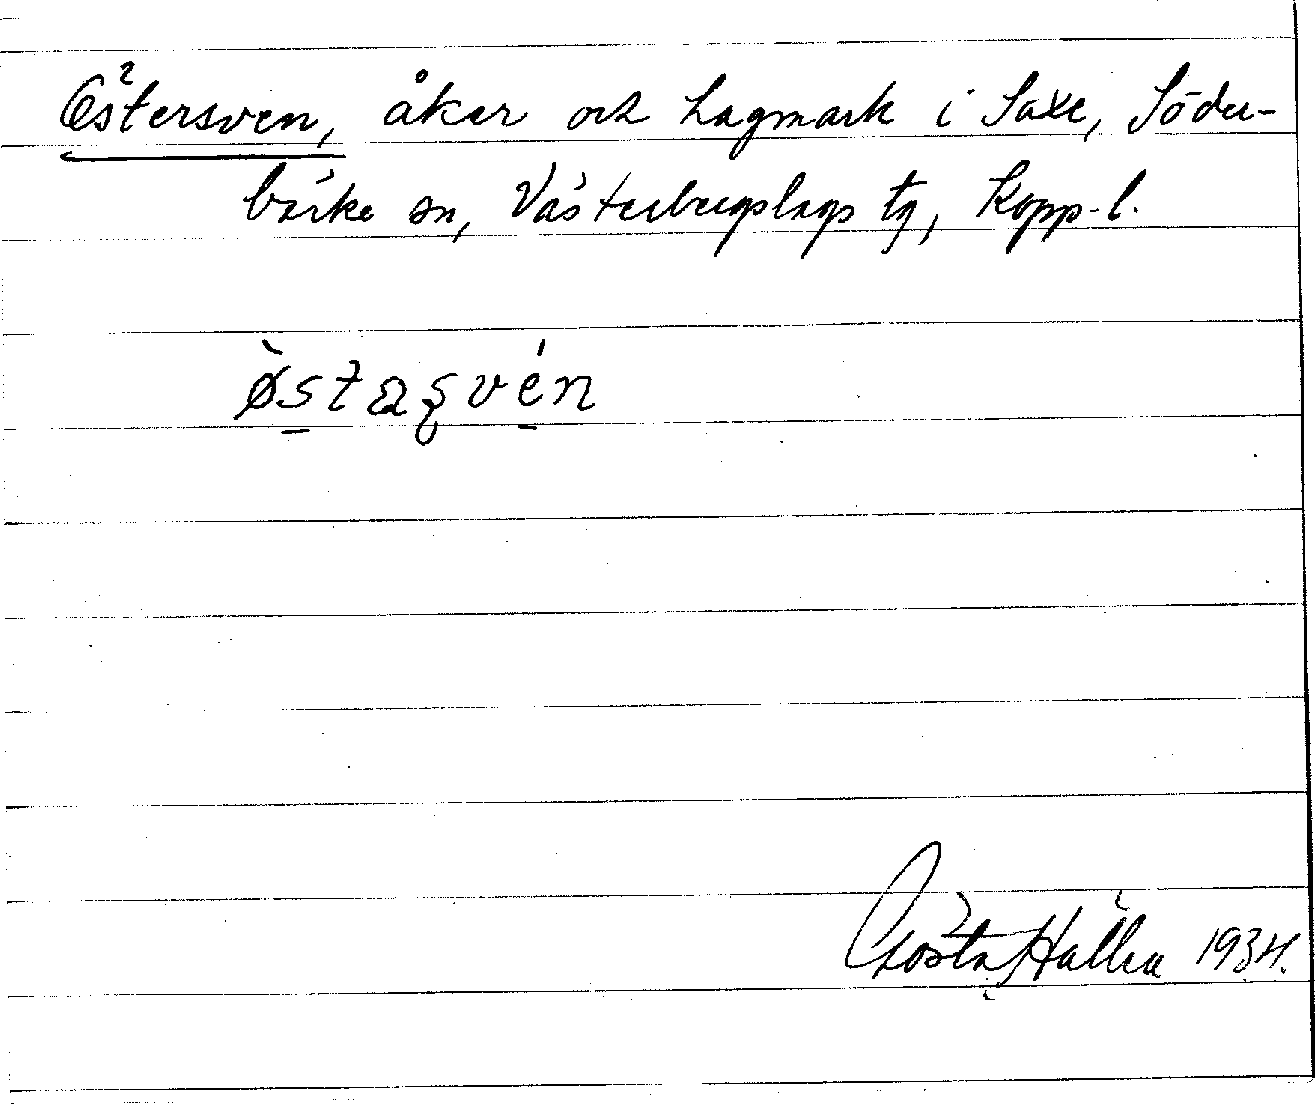 Östersven, åker och hagmark i Saxe, Söder-
bärke sn, Västerbergslags tg, Kopp. l.
ø̀staʂvén
Gösta Hallen 1934.